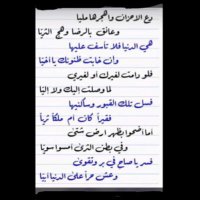 ودع الاحزان واهجرها مليا
وعانق بالرضا وهج الثريا
هي الدنيا فلا تأسف عليها
وان خابت ظنونك يا اخيا
فلو دامت لغيرك او لغيري
لما وصلت إليك ولا إليا
فسل تلك القبور وساكنيها
فقيراً كان أم ملكاً ثريا
اما اضحوا بظهر ارض شتى
وفي بطن الثرى امسوا سويا
فسر يا صاح في بر وتقوى
وعش حراً على الدنيا ابيا